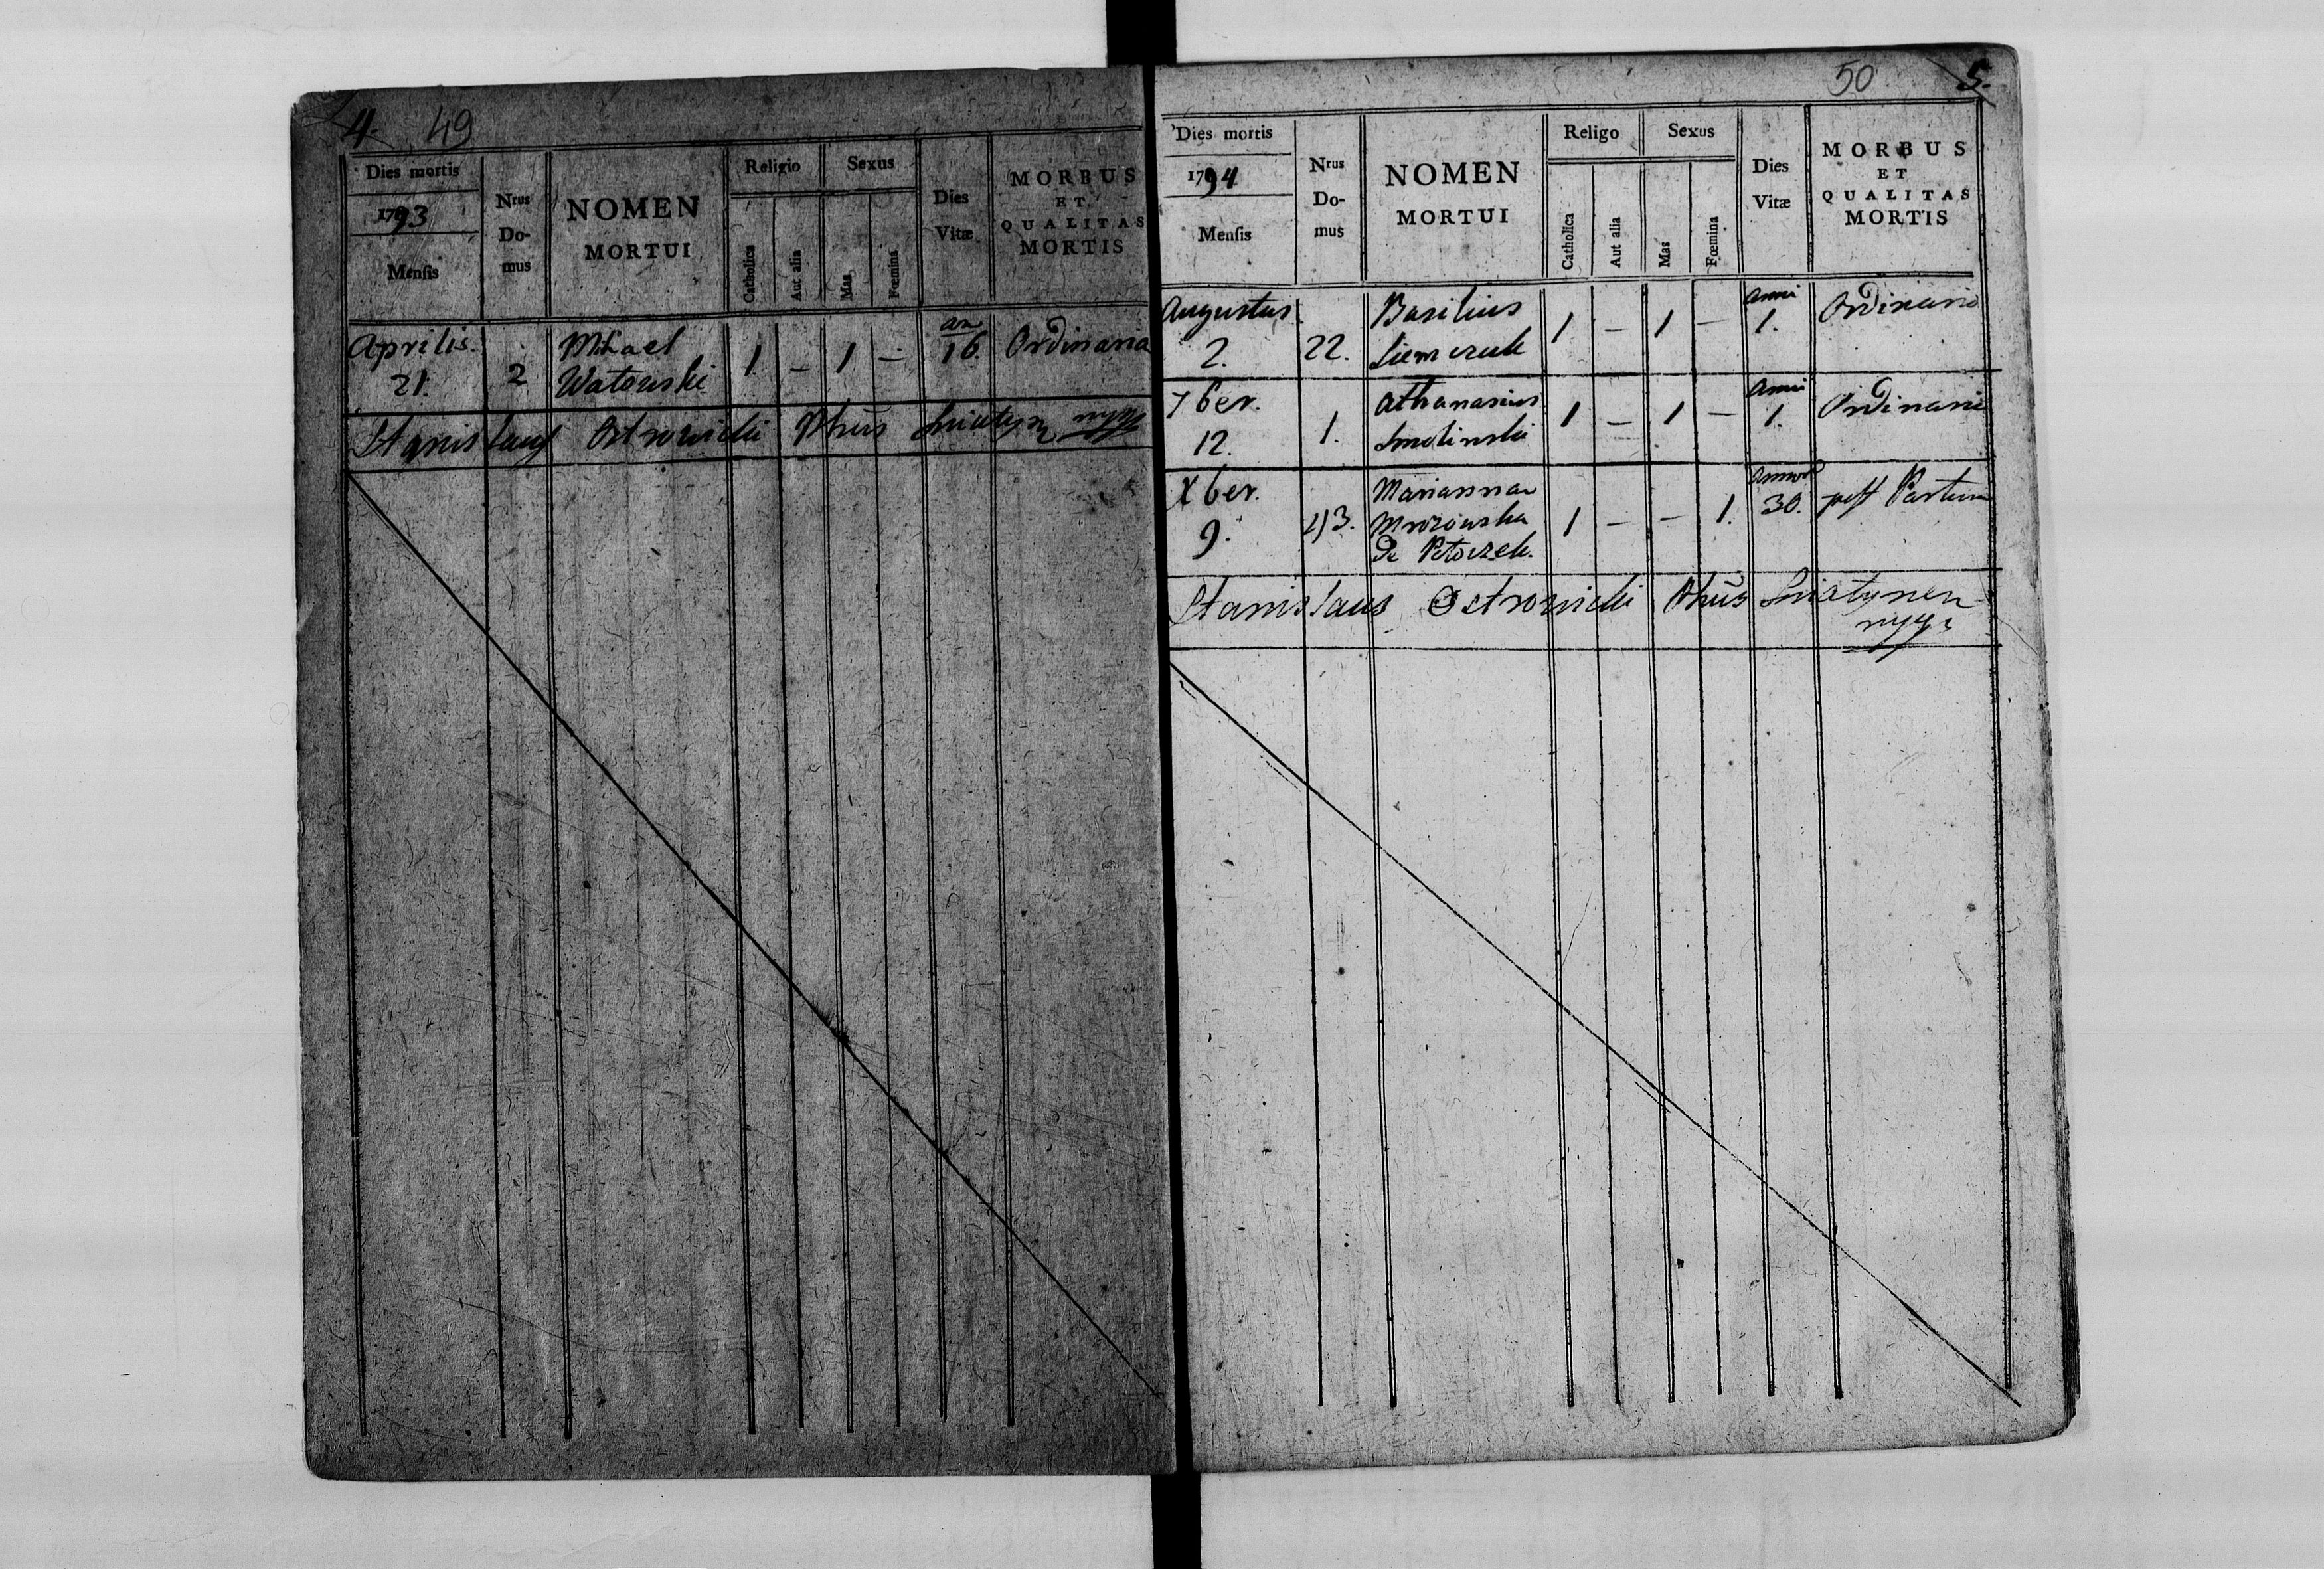 4. 49
Dies mortis
1793
Mensis
Nrus Do- mus
NOMEN
MORTUI
Religio
Catholica
Aut alia
Sexus
Mas
Fœmina
Dies Vitæ
MORBUS
ET
QUALITAS
MORTIS
Aprilis.
21. 2
Mihael
Watowski
1. – 1 – an 16. Ordinaria
Stanislaus Ostrowicki Sniatyn
50 5.
Dies mortis
1794
Mensis
Nrus Do- mus
NOMEN
MORTUI
Religo
Catholica
Aut alia
Sexus
Mas
Fœmina
Dies Vitæ
MORBUS
ET
QUALITAS
MORTIS
Augustus.
2. 22.
Basilius
1 – 1 – anni 1. Ordinaria
7ber.
12. 1.
Athanasius
Smolinski
1 – 1 – Anni 1. Ordinaria
Xber.
9. 43.
Marianna
Mrozowska
De
1 – – 1. annor 30. post Partum
Stanislaus Ostrowicki Sniatynen